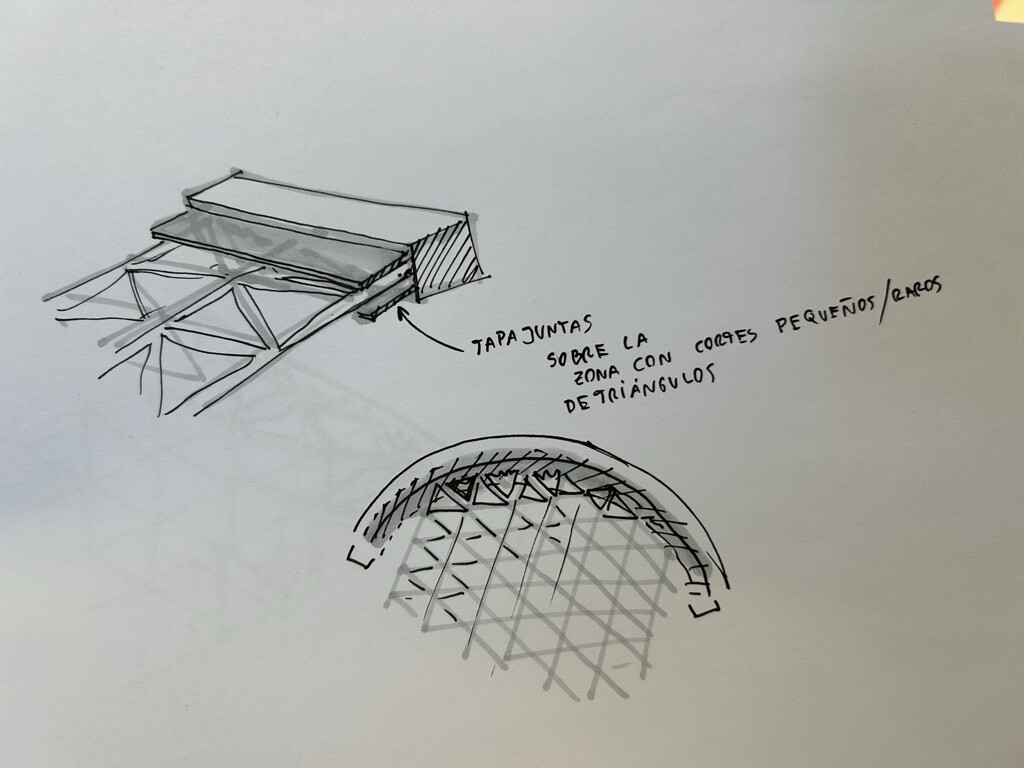 TAPAJUNTAS
SOBRE LA
ZONA CON CORTES PEQUEÑOS/RAROS
DE TRIÁNGULOS